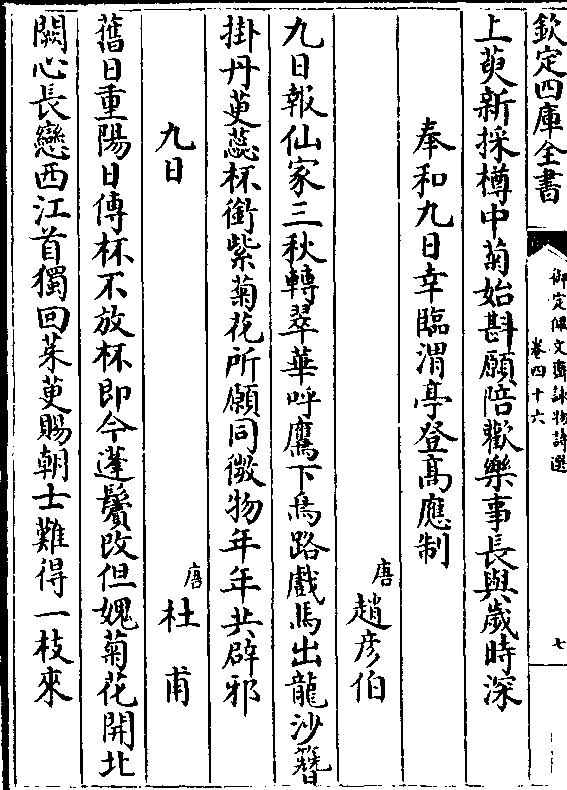 欽定四庫全書
御定佩文齋詠物詩選
卷四十六
七
上萸新採樽中菊始斟願陪歡樂事長與歲時深
奉和九日幸臨渭亭登高應制
唐
趙彥伯
九日報仙家三秋轉翠華呼鷹下鳥路戲馬出龍沙簪
掛丹萸蕊杯銜紫菊花所願同微物年年共辟邪
九日
唐
杜甫
舊日重陽日傳杯不放杯即今蓬鬢改但媿菊花開北
闕心長戀西江首獨回茱萸賜朝士難得一枝來